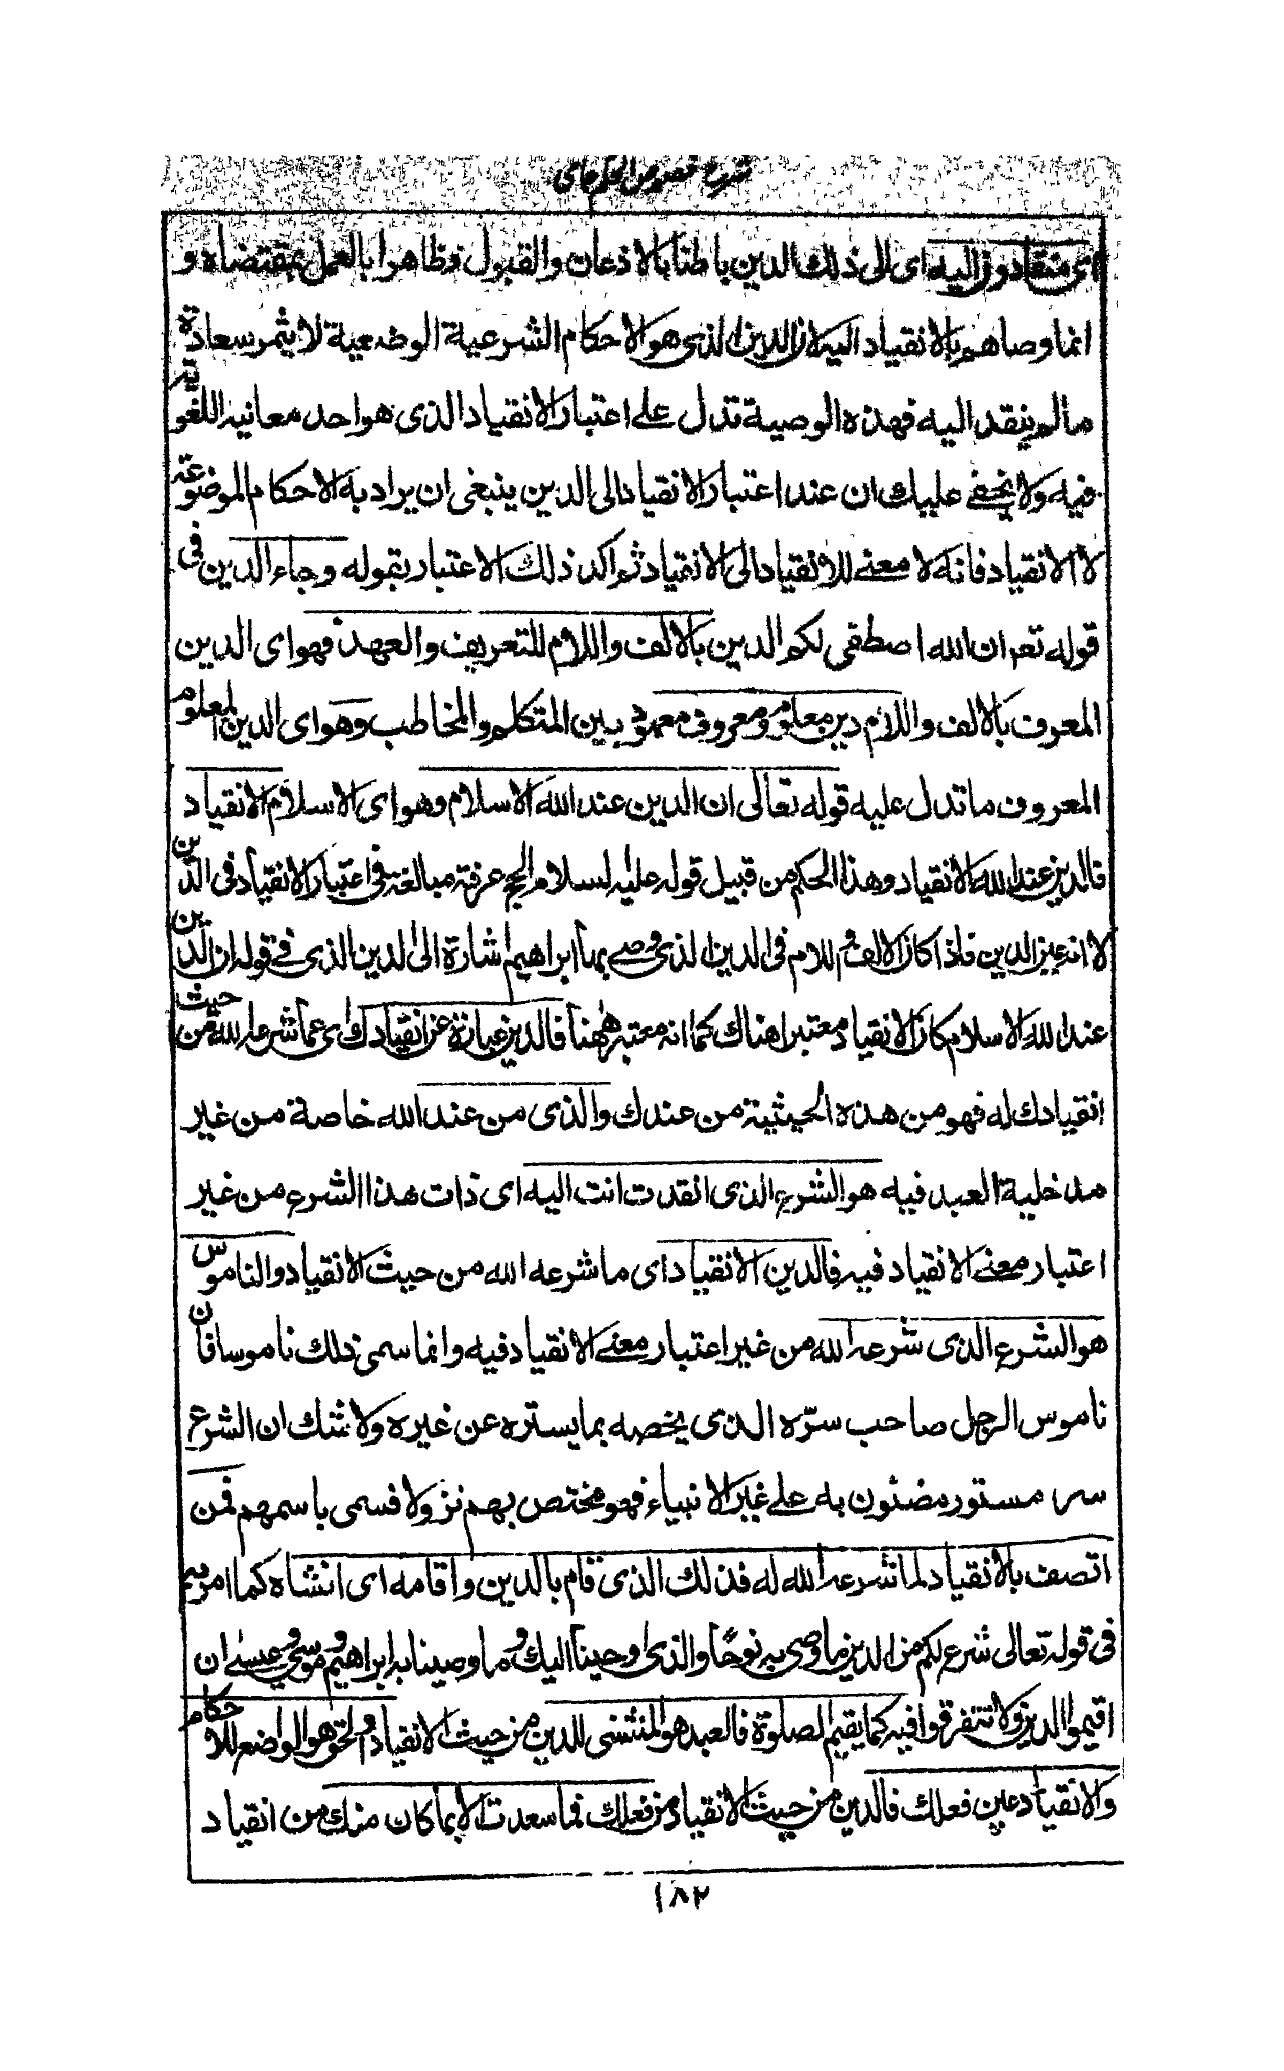 شرح فصوص الحكم جامى
اى منقادون اليه اى الى ذلك الدين باطنا بالاذعان والقبول وظاهرا بالعمل بمقتضاه و
انما وصاهم بالانقياد اليه لان الدين الذى هو الاحكام الشرعية الوضعية لا يثمر سعادة
ما لم ينقد اليه فهذه الوصية تدل على اعتبار الانقياد الذى هو احد معانيه اللغوية
فيه ولا يخفى عليك ان عند اعتبار الانقياد الى الدين ينبغى ان يراد به الاحكام الموضوعة
لا الانقياد فانه لا معنى للانقياد الى الانقياد ثم اكد ذلك الاعتبار بقوله وجاء الدين فى
قوله تع ان الله اصطفى لكم الدين بالالف واللام للتعريف والعهد فهو اى الدين
المعرف بالالف واللام دين معلوم ومعروف معهود بين المتكلم والمخاطب وهو اى الدين المعلوم
المعروف ما تدل عليه قوله تعالى ان الدين عند الله الاسلام وهو اى الاسلام الانقياد
فالدين عند الله الانقياد وهذا الحكم من قبيل قوله عليه السلام الحج عرفة مبالغة فى اعتبار الانقياد فى الدين
لا انه عين الدين فاذا كان الالف واللام فى الدين الذى وصى بها ابراهيم اشارة الى الدين الذى فى قوله ان الدين
عند الله الاسلام كان الانقياد معتبرا هناك كما انه معتبر ههنا فالدين عبارة عن انقيادك اى عما شرعه الله من حيث
انقيادك له فهو من هذه الحيثية من عندك والذى من عند الله خاصة من غير
مدخلية العبد فيه هو الشرع الذى انقدت انت اليه اى ذات هذا الشرع من غير
اعتبار معنى الانقياد فيه فالدين الانقياد اى ما شرعه الله من حيث الانقياد والناموس
هو الشرع الذى شرعه الله من غير اعتبار معنى الانقياد فيه وانما سمى ذلك ناموسا فان
ناموس الرجل صاحب سرّه الذى يخصه بما يستره عن غيره ولا شك ان الشرع
سر مستور مضنون به على غير الانبياء فهو مختص بهم نزولا فسمى باسمهم فمن
اتصف بالانقياد لما شرعه الله له فذلك الذى قام بالدين واقامه اى انشاه كما امر به
فى قوله تعالى شرع لكم من الدين ما وصى به نوحًا والذى اوحينا اليك وما وصينا به ابراهيم وموسى وعيسى ان
اقيموا الدين ولا تتفرقوا فيه كما يقيم الصلوة فالعبد هو المنشئ للدين من حيث الانقياد والحق هو الواضع للاحكام
والانقياد عين فعلك فالدين من حيث الانقياد من فعلك فما سعدت الا بما كان منك من انقياد
١٨٢